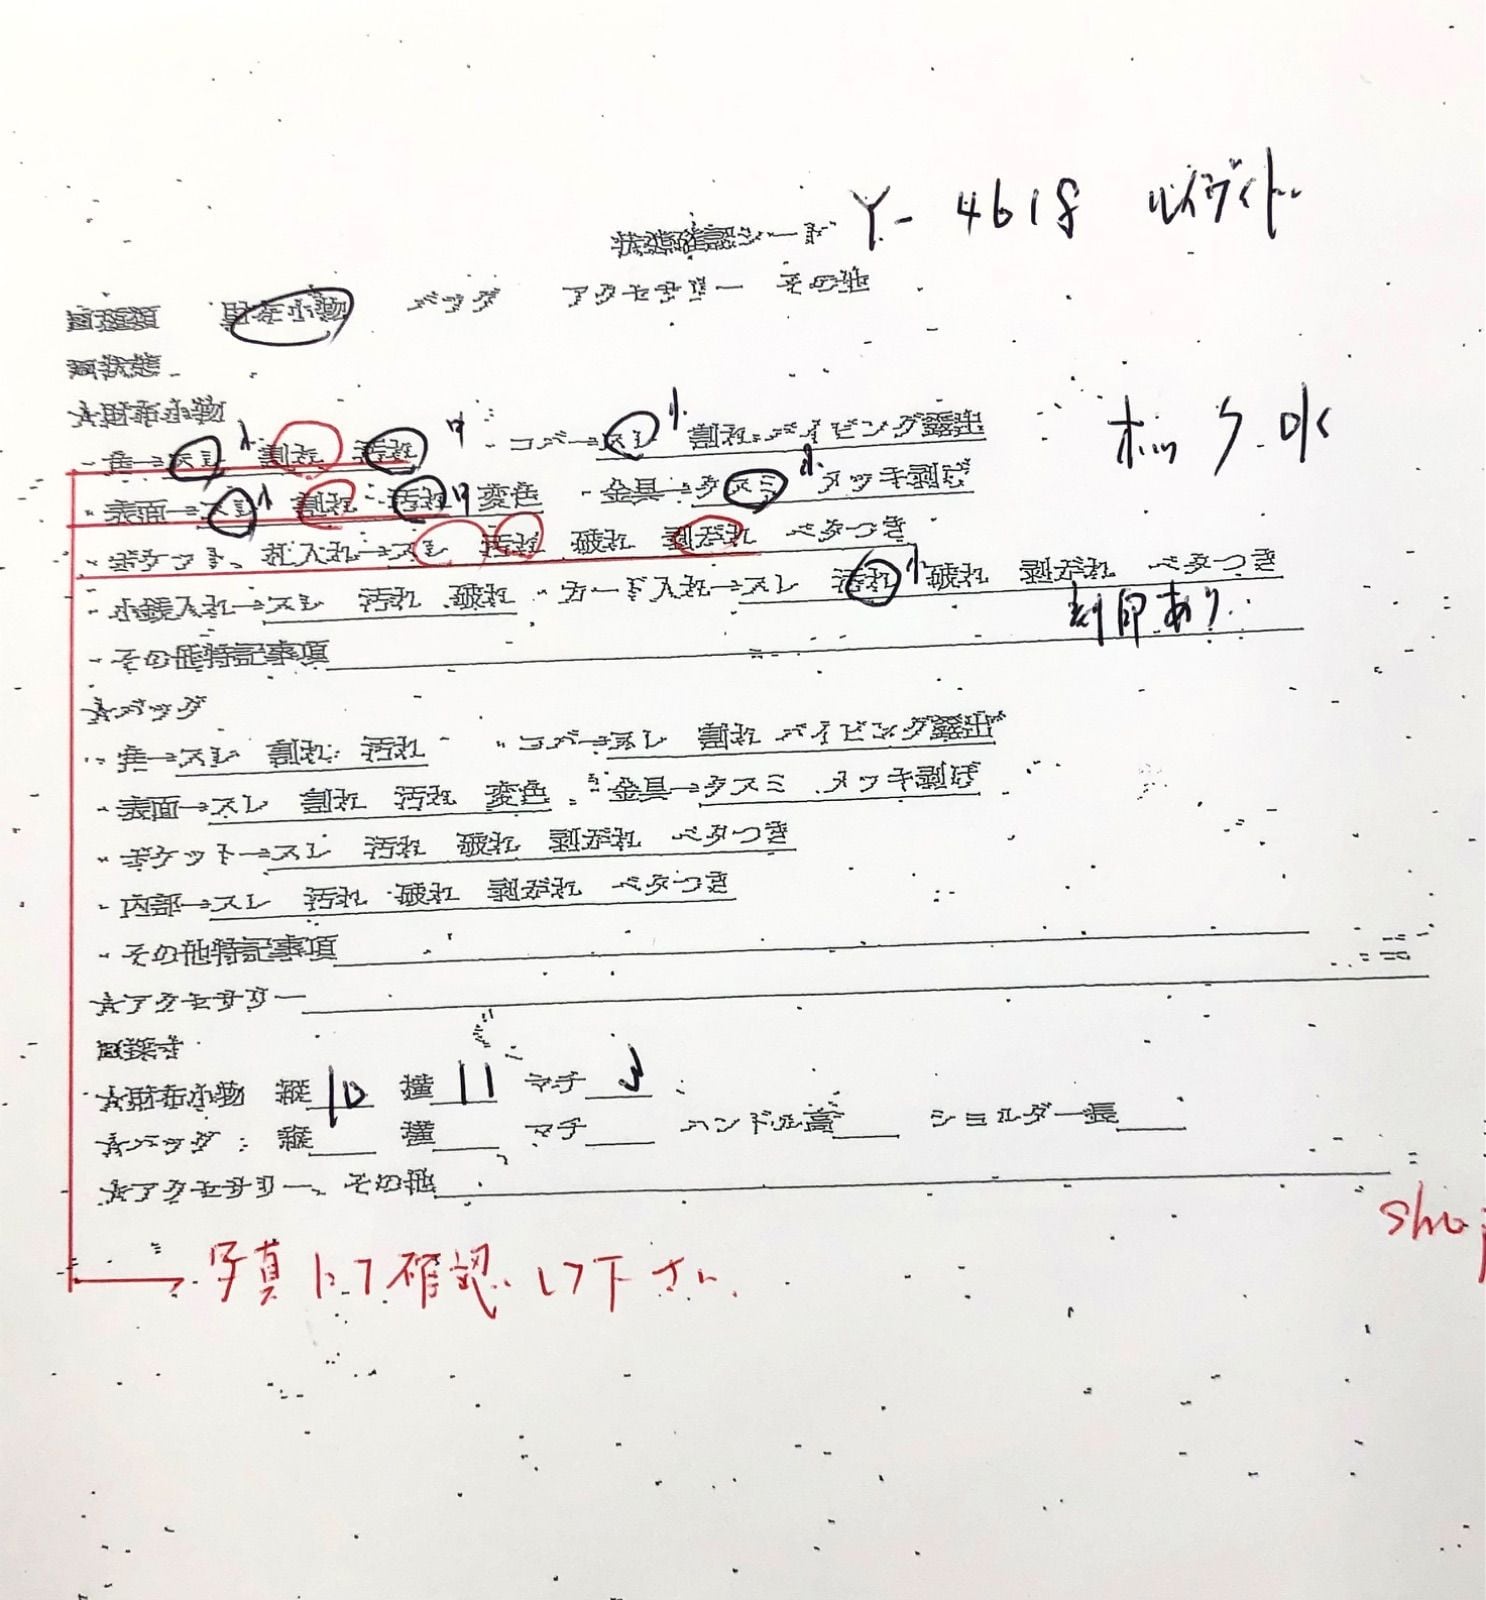 状態確認シード Y-4618 ルイヴィトン
□種類 財布小物 バッグ アクセサリー その他
□状態
☆財布小物
・角→スレ 小 割れ 汚れ 中 ・コバ→スレ 小 割れ パイピング露出
・表面→スレ 小 割れ 汚れ 中 変色 ・金具→クスミ 小 メッキ剥げ
・ポケット、札入れ→スレ 汚れ 破れ 剥がれ ベタつき
・小銭入れ→スレ 汚れ 破れ ・カード入れ→スレ 汚れ 小 破れ 剥がれ ベタつき
・その他特記事項 刻印あり
☆バッグ
・角→スレ 割れ 汚れ ・コバ→スレ 割れ パイピング露出
・表面→スレ 割れ 汚れ 変色 ・金具→クスミ メッキ剥げ
・ポケット→スレ 汚れ 破れ 剥がれ ベタつき
・内部→スレ 汚れ 破れ 剥がれ ベタつき
・その他特記事項
☆アクセサリー
□採寸
☆財布小物 縦 10 横 11 マチ 3
☆バッグ 縦 横 マチ ハンドル高 ショルダー長
☆アクセサリー、その他
写真にて確認して下さい